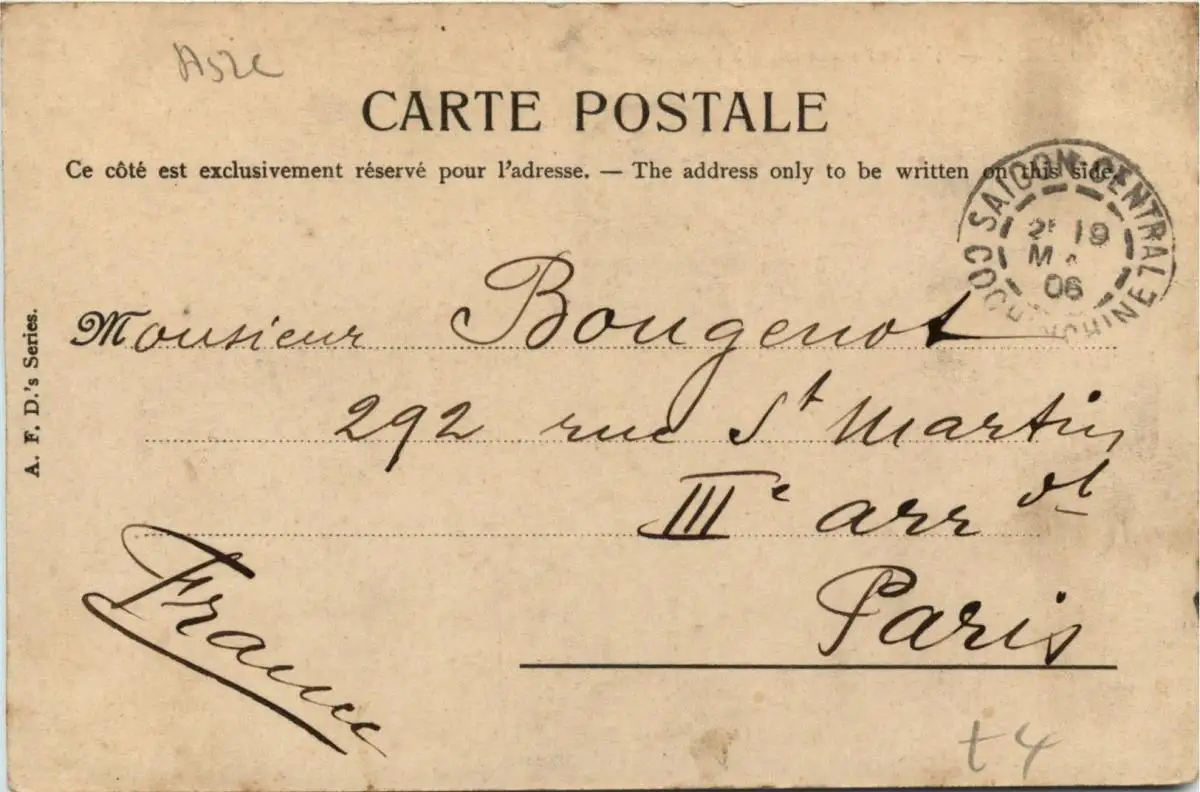 CARTE POSTALE
Ce côté est exclusivement réservé pour l'adresse. — The address only to be written on this side.
SAIGON-CENTRAL
2E 19
06
COCHINCHINE
A. F. D.'s Series.
Monsieur Bougenot
292 rue St Martin
IIIe arr dt
Paris
France
t4